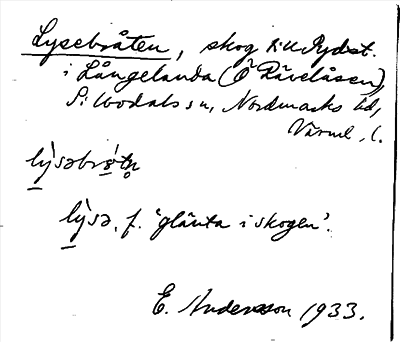 Lysebråten, skog till Rydst.
i Långelanda (Ö Rävelåsen),
S:. bodals sn, Nordmarks hd,
Värml. l.
lysəbrötn
lysə, f. 'glänta i skogen'.
E. Andersson 1933.